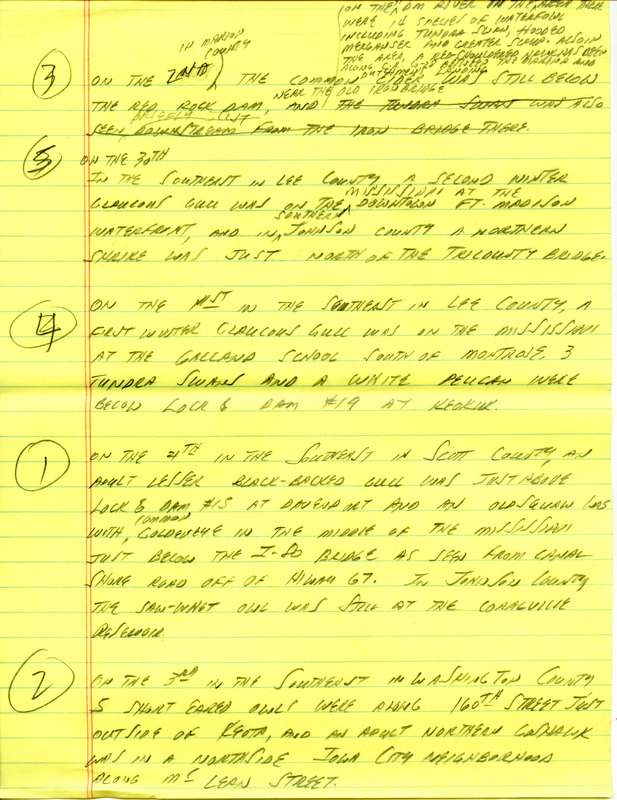 ON THE DM RIVER IN THE AREA THERE
WERE 14 SPECIES OF WATERFOWL
INCLUDING TUNDRA SWAN, HOODED
MERGANSER AND GREATER SCAUP. ALSO IN
THE AREA, A RED-SHOULDERED HAWK HAS BEEN
ALONG G-28 BETWEEN THE MARION AND
LANDING
IN MARION
COUNTY
3 ON THE 2ND THE COMMON EIDER WAS STILL BELOW
NEAR THE OLD IRON BRIDGE
THE RED ROCK DAM, AND THE TUNDRA SWANS WAS ALSO
BRIEFLY JUST
SEEN DOWNSTREAM FROM THE IRON BRIDGE THERE.
5 ON THE 30TH
IN THE SOUTHEAST IN LEE COUNTY A SECOND WINTER
MISSISSIPPI AT THE
GLAUCOUS GULL WAS ON THE DOWNTOWN FT. MADISON
SOUTHERN
WATERFRONT, AND IN JOHNSON COUNTY A NORTHERN
SHRIKE WAS JUST NORTH OF THE TRICOUNTY BRIDGE.
4 ON THE 1ST IN THE SOUTHEAST IN LEE COUNTY, A
FIRST WINTER GLAUCOUS GULL WAS ON THE MISSISSIPPI
AT THE GALLAND SCHOOL SOUTH OF MONTROSE. 3
TUNDRA SWANS AND A WHITE PELICAN WERE
BELOW LOCK & DAM #19 AT KEOKUK.
1 ON THE 4TH IN THE SOUTHEAST IN SCOTT COUNTY, AN
ADULT LESSER BLACK-BACKED GULL WAS JUST ABOVE
LOCK & DAM #15 AT DAVENPORT AND AN OLDSQUAW WAS
COMMON
WITH GOLDENEYE IN THE MIDDLE OF THE MISSISSIPPI
JUST BELOW THE I-80 BRIDGE AS SEEN FROM CANAL
SHORE ROAD OFF OF HIWAY 67. IN JOHNSON COUNTY
THE SAW-WHET OWL WAS STILL AT THE CORALVILLE
RESERVOIR.
2 ON THE 3RD IN THE SOUTHEAST IN WASHINGTON COUNTY
5 SHORT EARED OWLS WERE ALONG 160TH STREET JUST
OUTSIDE OF KEOTA, AND AN ADULT NORTHERN GOSHAWK
WAS IN A NORTHSIDE IOWA CITY NEIGHBORHOOD
ALONG MC LEAN STREET.